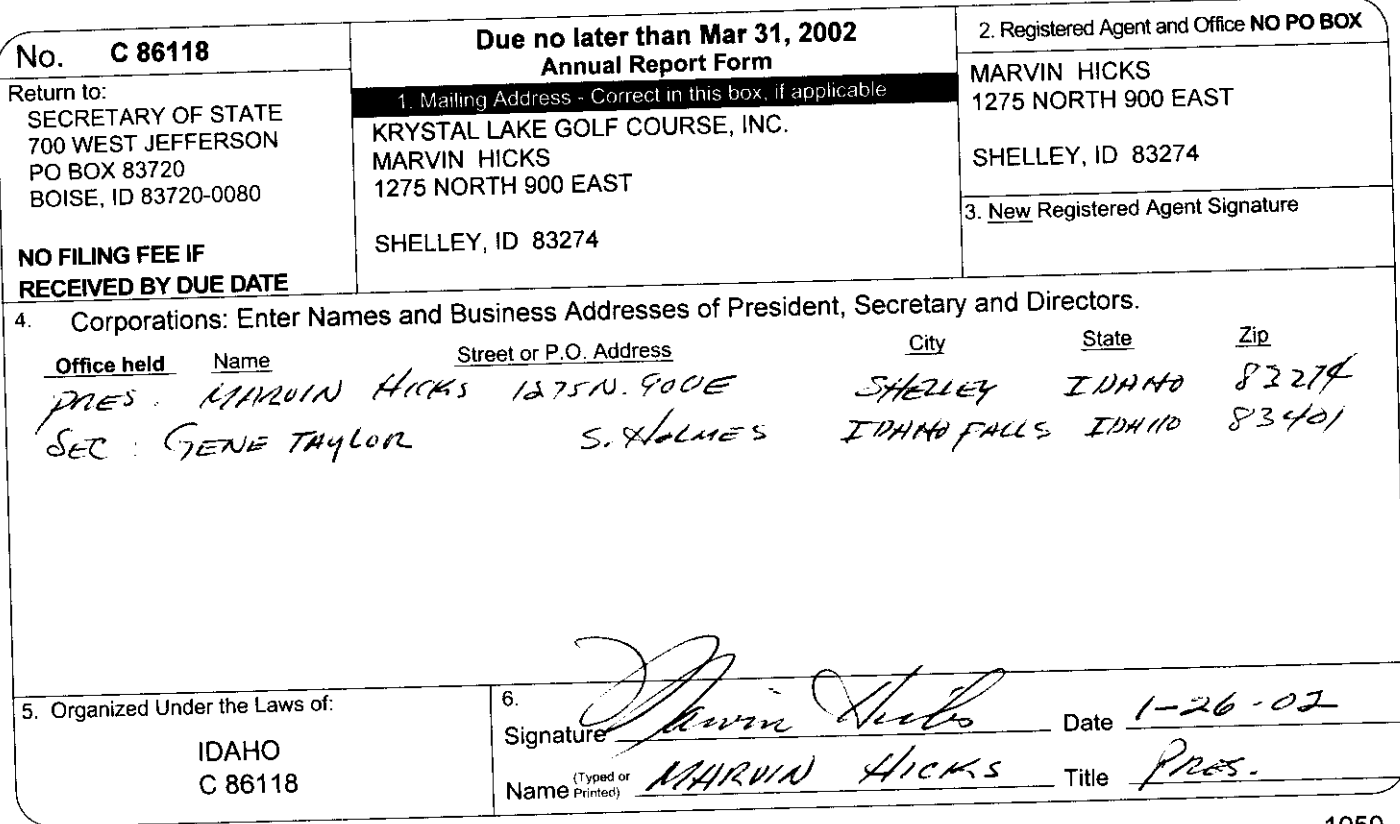 No. C 86118
Return to:
SECRETARY OF STATE
700 WEST JEFFERSON
PO BOX 83720
BOISE, ID 83720-0080
NO FILING FEE IF
RECEIVED BY DUE DATE
Due no later than Mar 31, 2002
Annual Report Form
1. Mailing Address - Correct in this box, if applicable
KRYSTAL LAKE GOLF COURSE, INC.
MARVIN HICKS
1275 NORTH 900 EAST
SHELLEY, ID 83274
2. Registered Agent and Office NO PO BOX
MARVIN HICKS
1275 NORTH 900 EAST
SHELLEY, ID 83274
3. New Registered Agent Signature
4. Corporations: Enter Names and Business Addresses of President, Secretary and Directors.
Office held Name Street or P.O. Address City State Zip
PRES. MARVIN HICKS 1275 N. 900E SHELLEY IDAHO 83274
SEC : GENE TAYLOR S. HOLMES IDAHO FALLS IDAHO 83401
5. Organized Under the Laws of:
IDAHO
C 86118
6.
Signature Marvin Hicks Date 1-26-02
Name (Typed or Printed) MARVIN HICKS Title PRES.